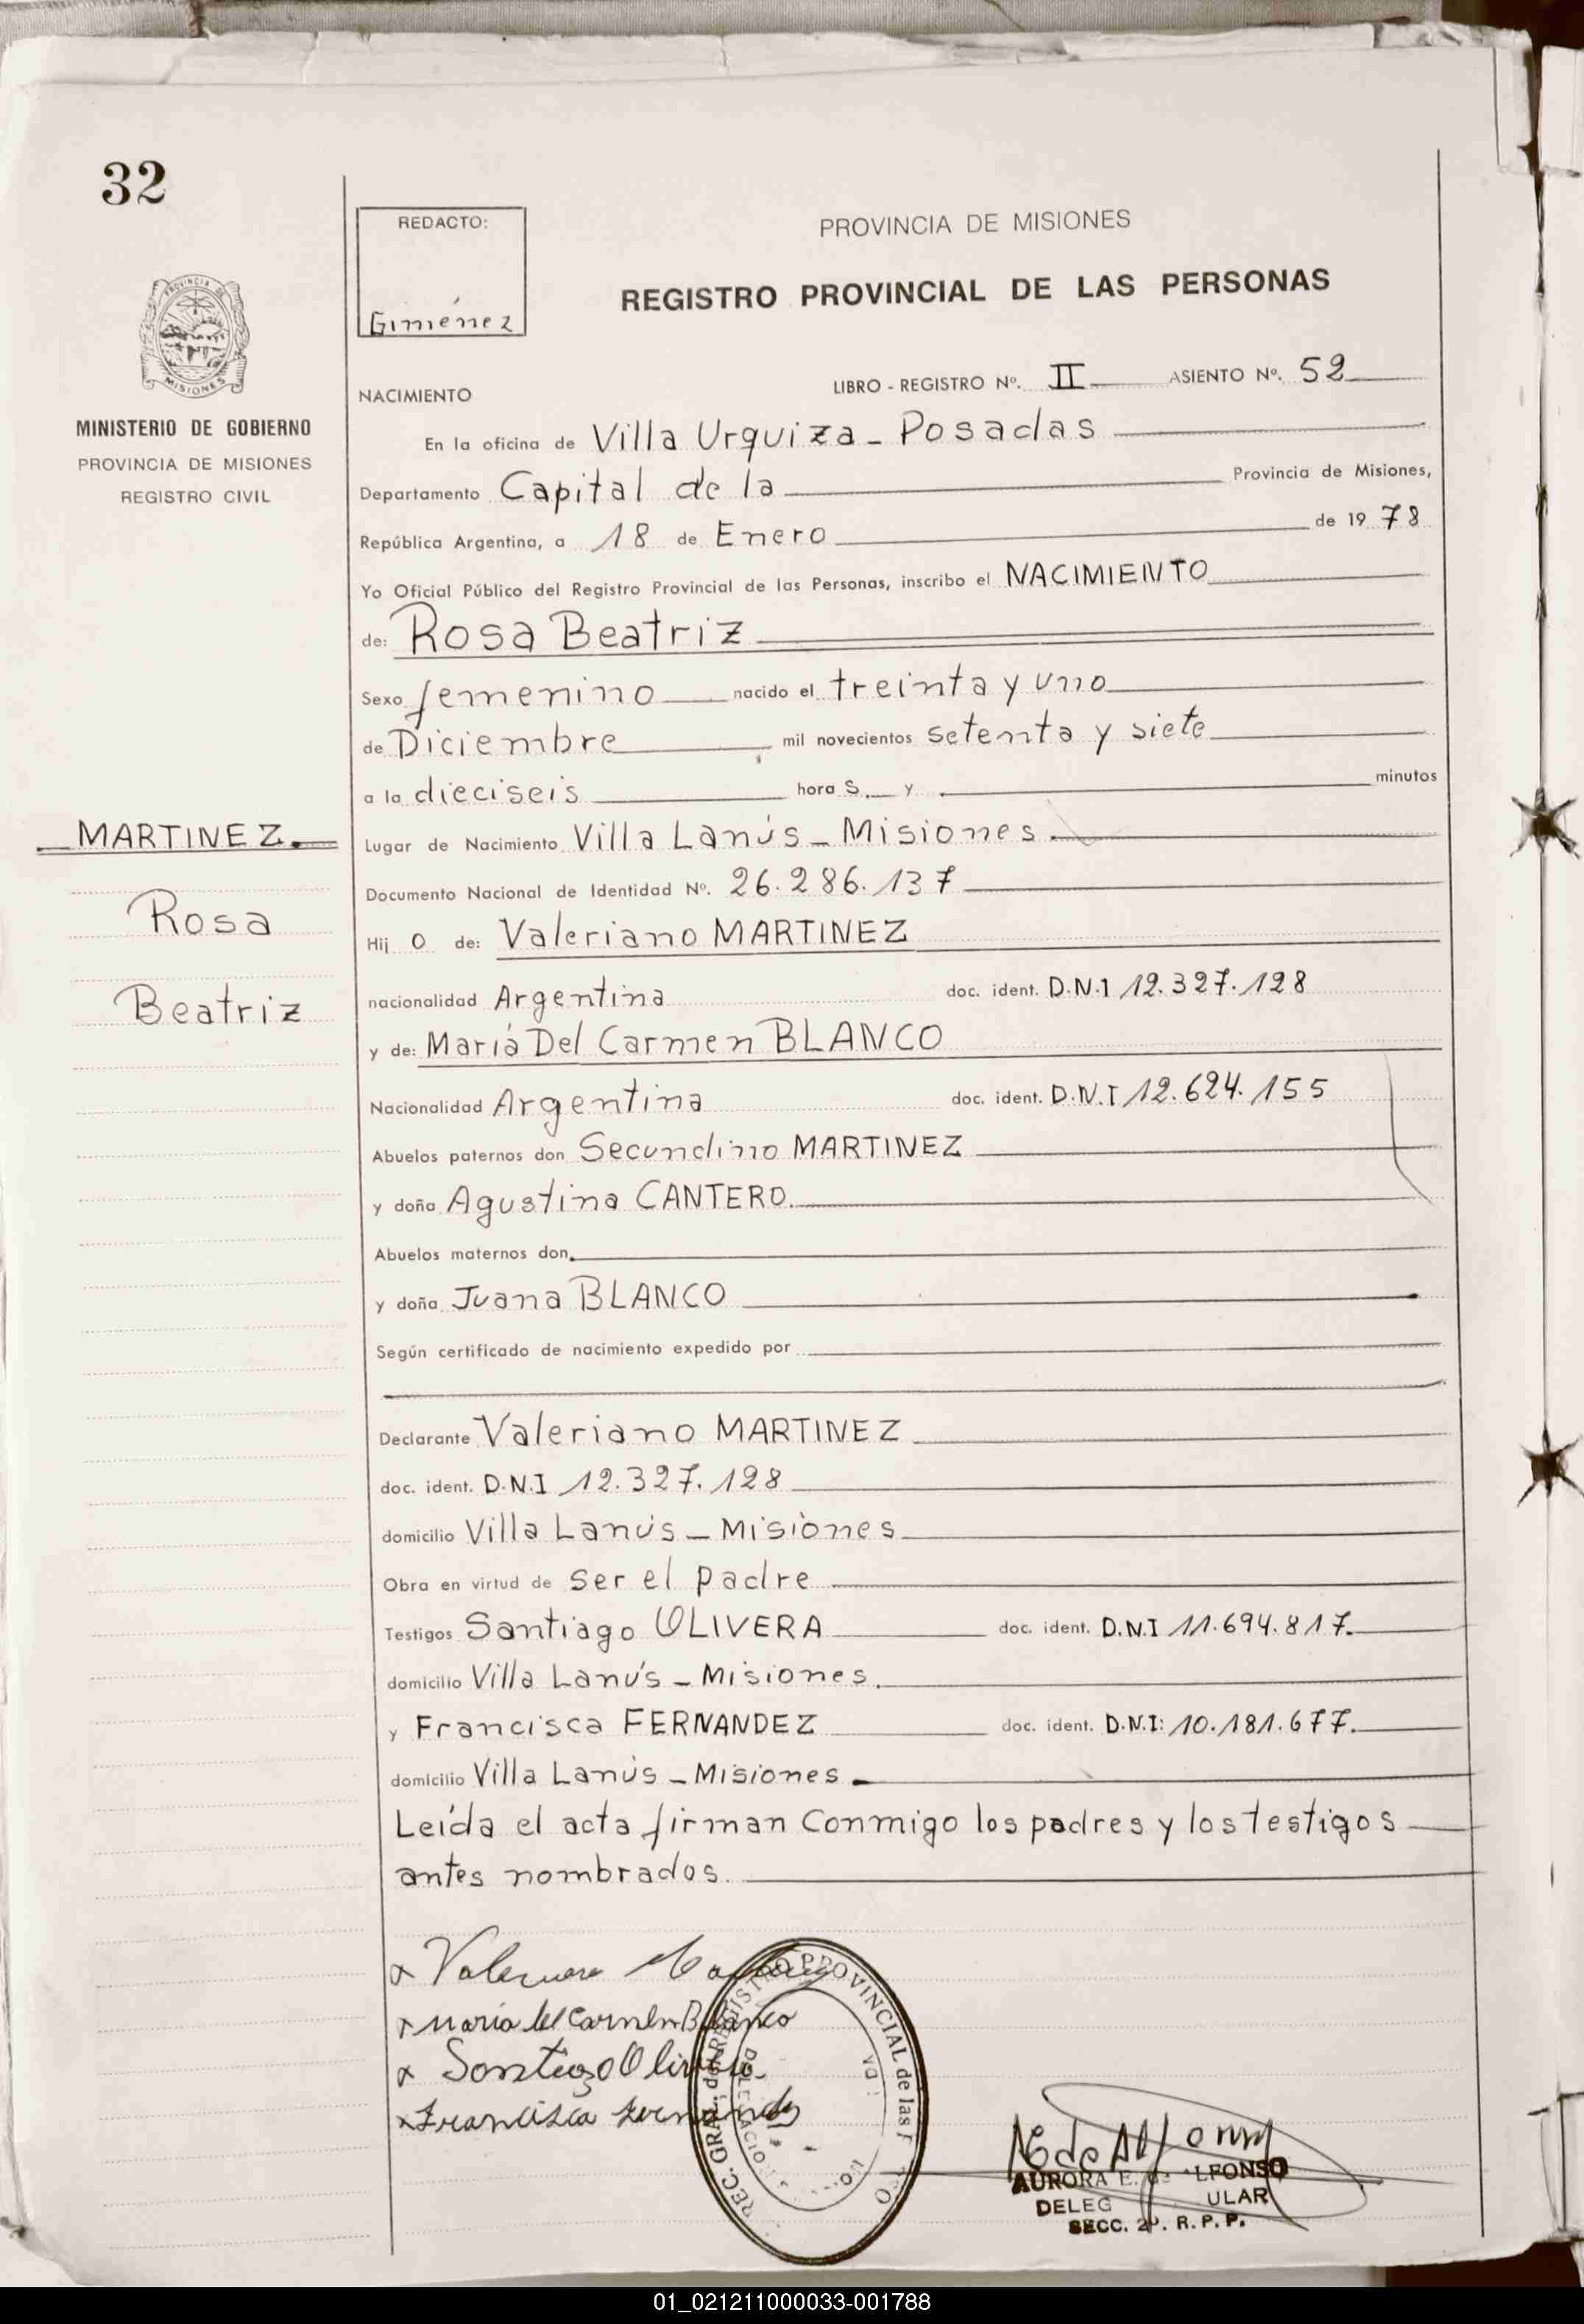 32
REDACTO:
Giménez
PROVINCIA DE MISIONES
REGISTRO PROVINCIAL DE LAS PERSONAS
PROVINCIA DE
MISIONES
MINISTERIO DE GOBIERNO
PROVINCIA DE MISIONES
REGISTRO CIVIL
NACIMIENTO
LIBRO - REGISTRO Nº. II ASIENTO Nº. 52
En la oficina de Villa Urquiza - Posadas
Departamento Capital de la Provincia de Misiones,
República Argentina, a 18 de Enero de 1978
Yo Oficial Público del Registro Provincial de las Personas, inscribo el NACIMIENTO
de: Rosa Beatriz
Sexo femenino nacido el treinta y uno
de Diciembre mil novecientos setenta y siete
a la dieciseis hora s y minutos
MARTINEZ.
Rosa
Beatriz
Lugar de Nacimiento Villa Lanús - Misiones.
Documento Nacional de Identidad Nº. 26.286.137
Hij o de: Valeriano MARTINEZ
nacionalidad Argentina doc. ident. D.N.I 12.327.128
y de: Maria Del Carmen BLANCO
Nacionalidad Argentina doc. ident. D.N.I 12.624.155
Abuelos paternos don Secundino MARTINEZ
y doña Agustina CANTERO.
Abuelos maternos don.
y doña Juana BLANCO
Según certificado de nacimiento expedido por
Declarante Valeriano MARTINEZ
doc. ident. D.N.I 12.327.128
domicilio Villa Lanús - Misiones
Obra en virtud de ser el padre
Testigos Santiago OLIVERA doc. ident. D.N.I 11.694.817.
domicilio Villa Lanús - Misiones.
y Francisca FERNANDEZ doc. ident. D.N.I: 10.181.677.
domicilio Villa Lanús - Misiones.
Leída el acta firman conmigo los padres y los testigos
antes nombrados.
x Valeriano Martinez
x Maria del Carmen Blanco
x Santiago Olivera
x Francisca Fernandez
REC. GRAL. del REGISTRO PROVINCIAL de las
AURORA E. de ALFONSO
DELEG ULAR
SECC. 2ª. R.P.P.
01_021211000033-001788